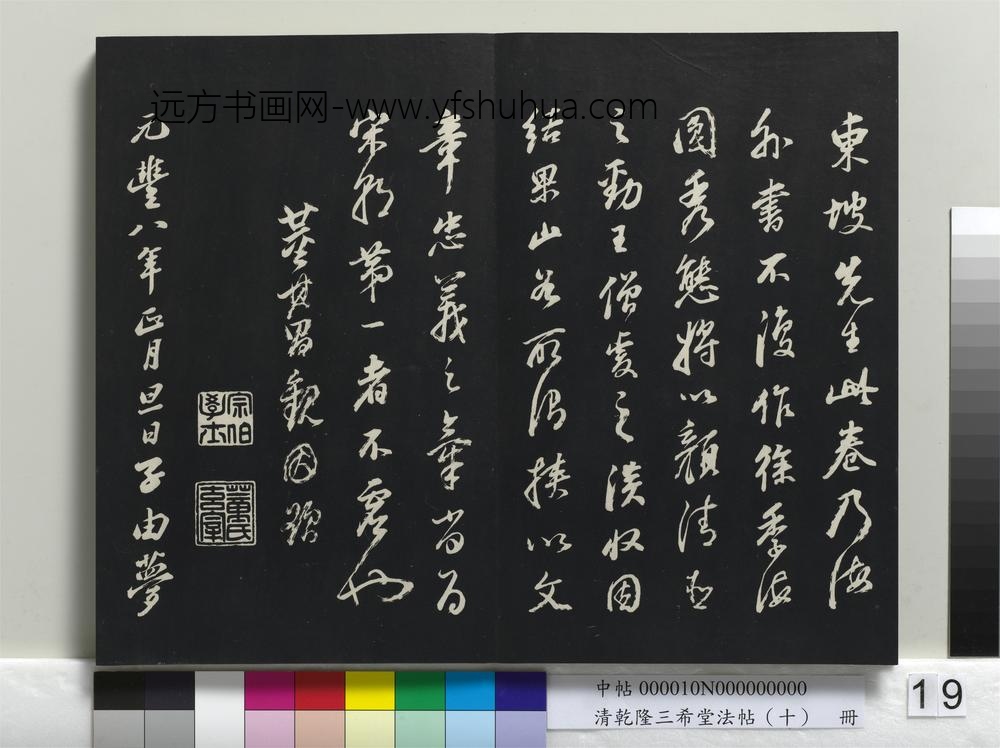 東坡先生此卷乃海
外書不復作徐季海
圓秀態将以顏清臣
之勁王僧虔之淡收因
結果山谷所謂挾以文
章忠義之氣當為
宋朝第一者不虛也
董其昌觀因題
宗伯學士
董氏玄宰
元豐八年正月旦日子由夢
远方书画网-www.yfshuhua.com
中帖 000010N000000000
清乾隆三希堂法帖（十） 冊
19